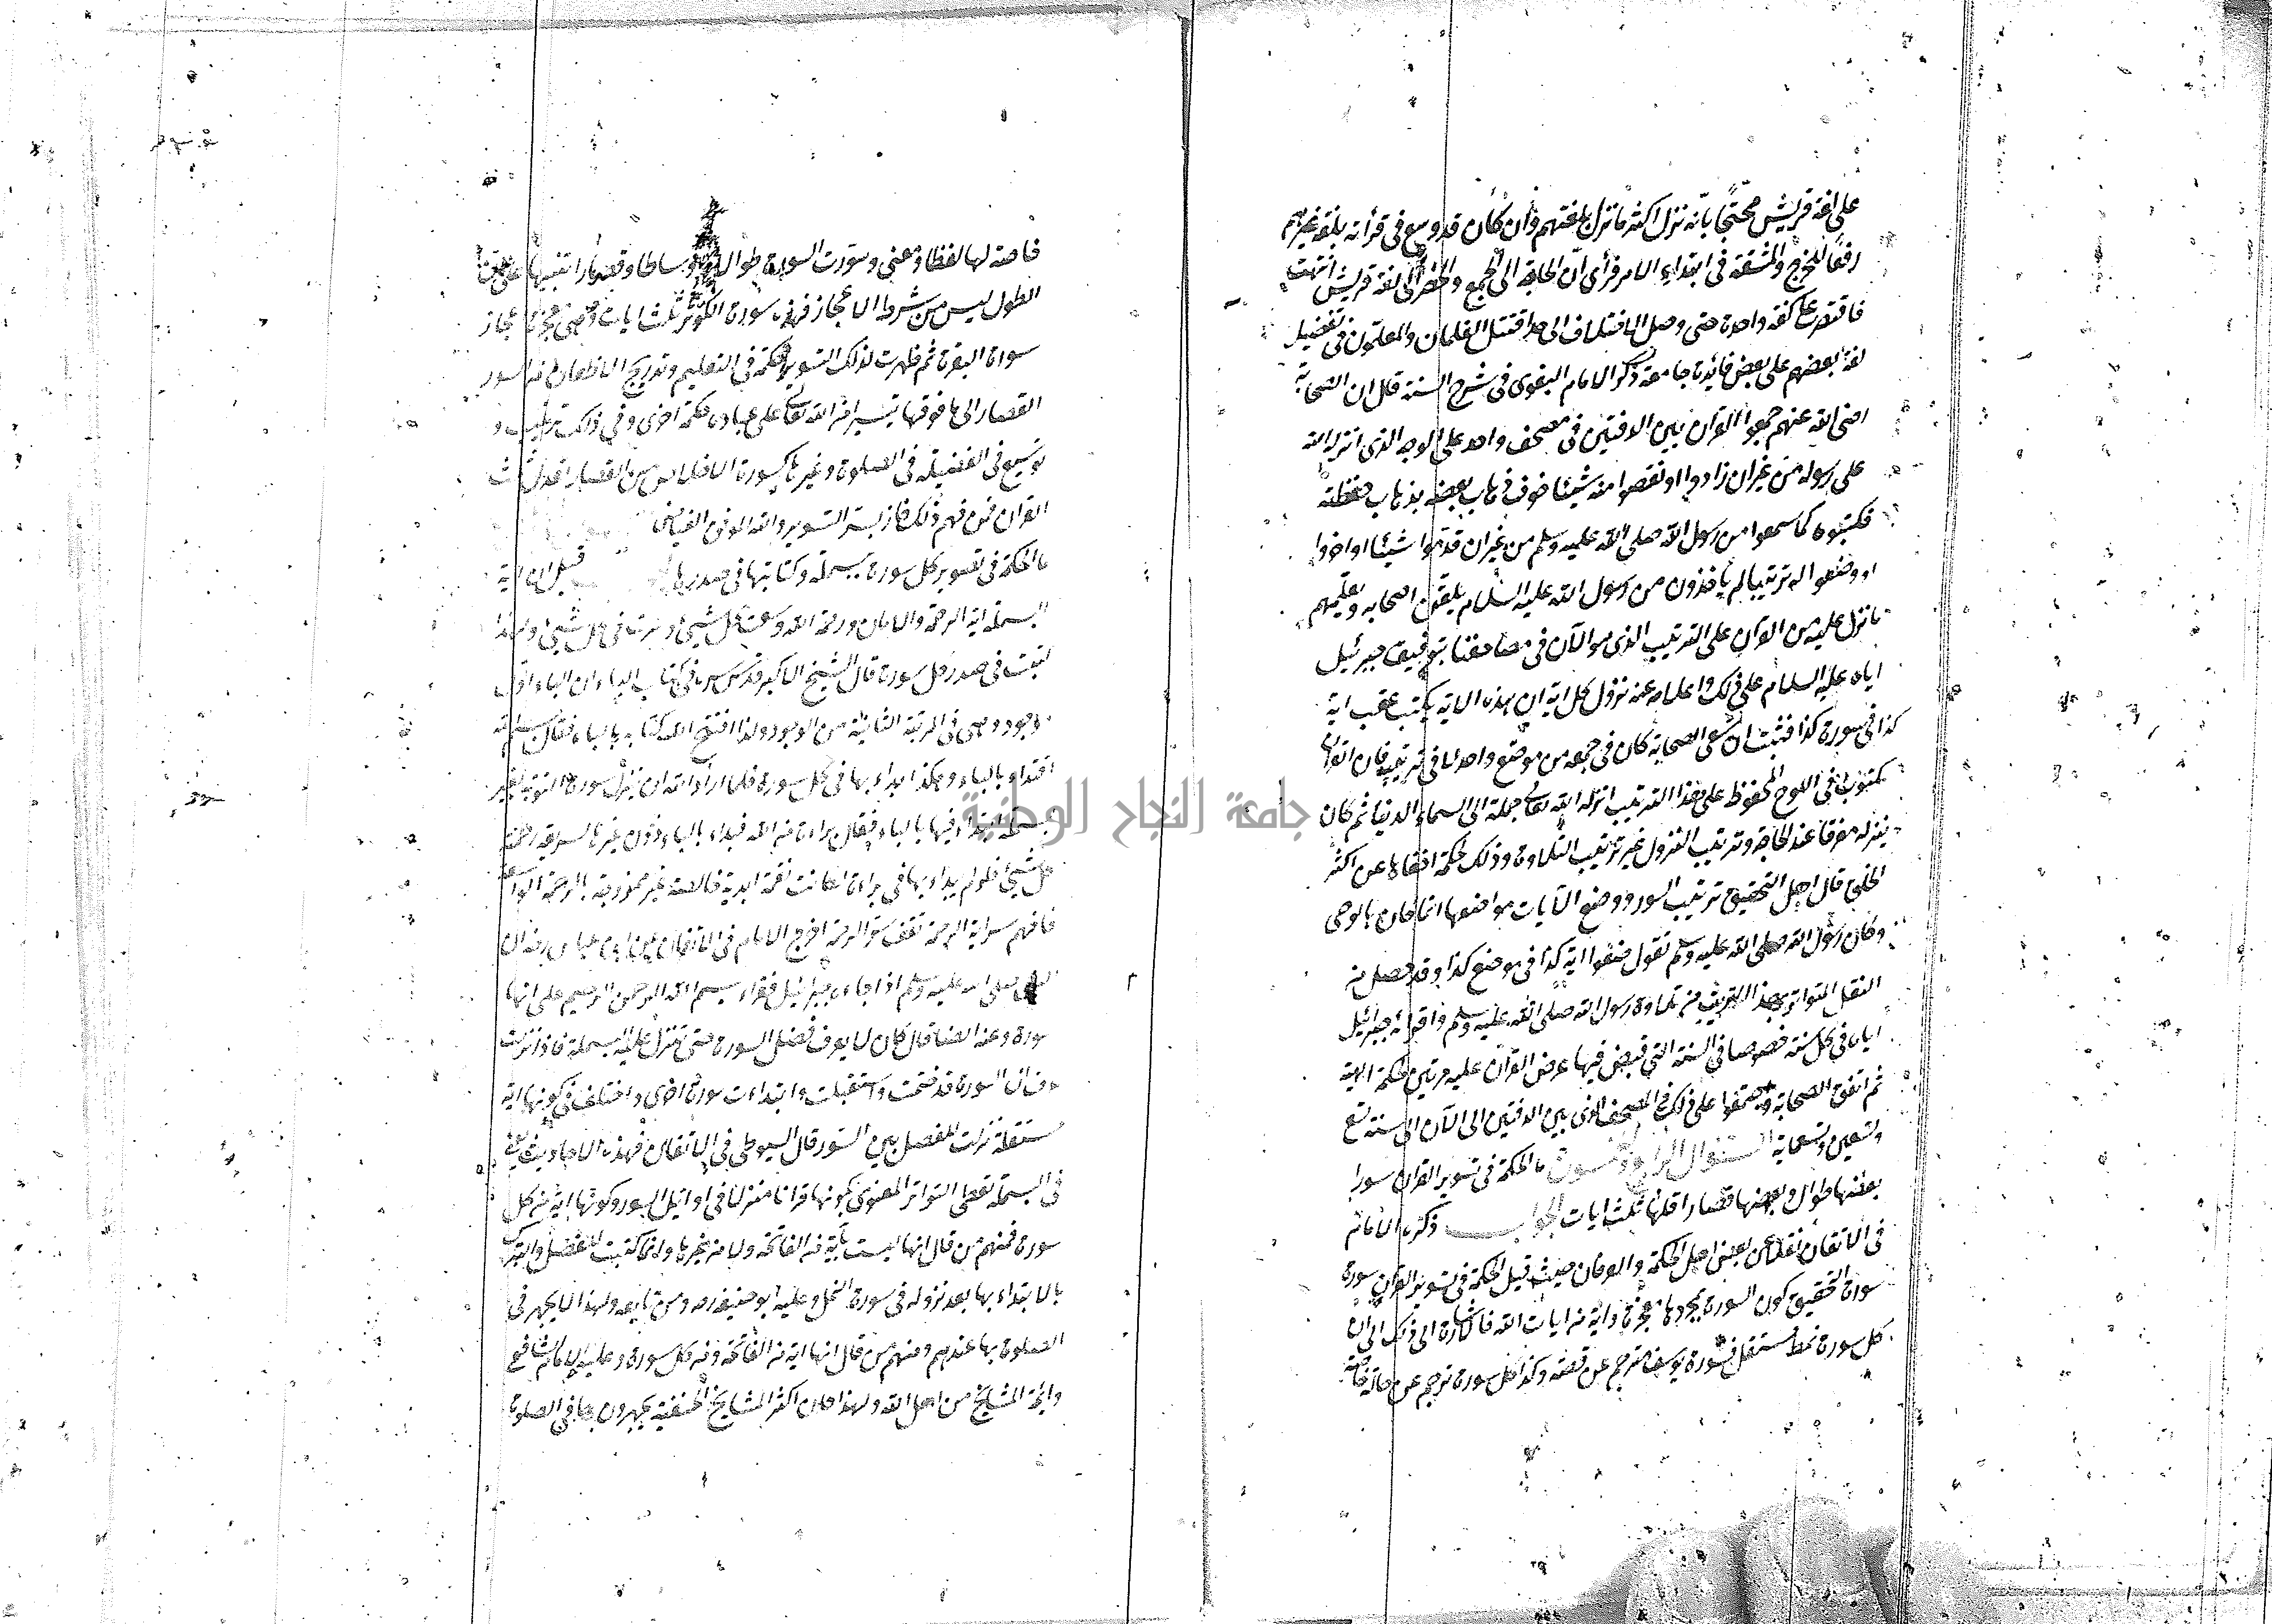 على لغة قريش محتجا بأنه نزل اكثر ما نزل بلغتهم وان كان قد وسع في قرأته بلغة غيرهم
رفعا للحرج والمشقة في ابتداء الامر فرأى ان الحاجة الى الجمع والحصر الى لغة قريش انتهت
فاقتصر على لغة واحدة حتى وصل الاختلاف الى حد اقتتل الغلمان والمعلمون في تفضيل
لغة بعضهم على بعض فائدة جامعة ذكر الامام البغوى في شرح السنة قال ان الصحابة
رضى الله عنهم جمعوا القرآن بين الدفتين في مصحف واحد على الوجه الذى انزله الله
على رسوله من غير ان زادوا او نقصوا منه شيئا خوف ذهاب بعضه بذهاب حفظته
فكتبوه كما سمعوا من رسول الله صلى الله عليه وسلم من غير ان قدموا شيئا او اخروا
او وضعوا له ترتيبا لم يأخذون من رسول الله عليه السلام يلقن اصحابه ويعلمهم
ما نزل عليه من القرآن على الترتيب الذى هو الآن في مصاحفنا بتوقيف جبرئيل
اياه عليه السلام على ذلك واعلامه عند نزول كل اية ان هذه الاية يكتب عقب اية
كذا في سورة كذا فثبت ان سعى الصحابة كان في جمعه من موضع واحد لا في ترتيبه فان القرآن
مكتوب في اللوح المحفوظ على هذا الترتيب انزله الله تعالى جملة الى السماء الدنيا ثم كان
ينزله مفرقا عند الحاجة وترتيب النزول غير ترتيب التلاوة وذلك لحكمة اخفاها عن اكثر
الخلق قال اهل التحقيق ترتيب السور ووضع الآيات مواضعها انما كان بالوحى
وكان رسول الله صلى الله عليه وسلم يقول ضعوا اية كذا في موضع كذا وقد حصل منه
النقل المتواتر بهذا الترتيب من تلاوة رسول الله صلى الله عليه وسلم واقرأه جبرائيل
اياه في كل سنة خصوصا في السنة التي قبض فيها عرض القرآن عليه مرتين لحكمة الهية
ثم اتفق الصحابة واجتمعوا على ذلك في المصحف الذى بين الدفتين الى الآن الى سنة تسع
وتسعين وتسعماية السؤال الرابع وخمسون ما الحكمة في تسوير القرآن سورا
بعضها طوال وبعضها قصار اقلها ثلث ايات الجواب ذكره الامام
في الاتقان نقلا عن بعض اهل الحكمة والعرفان حيث قيل الحكمة في تسوير القرآن سورة
سورة التحقيق كون السورة بمجردها معجزة واية من ايات الله فالاشارة الى ذلك الى ان
كل سورة نمط مستقل فسورة يوسف تترجم عن قصته وكذا كل سورة تترجم عن حالة خاصة
خاصة لها لفظا ومعنى وسورت السورة طوالا واوساطا وقصارا تنبيها على ان
الطول ليس من شرط الاعجاز فهذه سورة الكوثر ثلث ايات وهى معجزة اعجاز
سورة البقرة ثم ظهرت لذلك التسوير حكمة في التعليم وتدريج الاطفال من السور
القصار الى ما فوقها تيسيرا من الله تعالى على عباده حكمة اخرى وفي ذلك ترغيب و
توسيع في الفضيلة في الصلوة وغيرها كسورة الاخلاص من القصار تعدل ثلث
القرآن فمن فهم ذلك فاز بستر التسوير والله الموفق الفياض
ما الحكمة في تصوير كل سورة ببسملة وكتابتها في صدرها قيل ان اية
البسملة اية الرحمة والامان ورحمة الله وسعت كل شيئ وسرت في كل شيئ ولهذا
كتبت في صدر كل سورة قال الشيخ الاكبر قدس سره في كتاب الباء ان الباء اول
موجود وهى في المرتبة الثانية من الوجود ولذا افتتح الله كتابه بالباء فقال بسم الله
ابتداء بالباء وهكذا ابداء بها في كل سورة فلما اراد الله ان ينزل سورة التوبة بغير
بسملة ابتداء فيها بالباء فقال براءة من الله فبداء بالباء دون غيرها لسريع رحمته
كل شيئ فلو لم يداء بها في براءة لكانت نقمة ابدية خالصة غير ممزوجة بالرحمة الواسعة
فافهم سراية الرحمة تقف سر الرحمة اخرج الامام في الاتقان عن ابن عباس رضه ان
النبى صلى الله عليه وسلم اذا جاءه جبرائيل فقراء بسم الله الرحمن الرحيم علم انها
سورة وعنه ايضا قال كان لا يعرف فصل السورة حتى تنزل عليه بسملة فاذا نزلت
عرف ان السورة قد ختمت واستقبلت وابتداءت سورة اخرى واختلف في كونها اية
مستقلة نزلت للفصل بين السور قال السيوطى في الاتقان فهذه الاحاديث
في البسملة تعطى التواتر المعنوى بكونها قرانا منزلا في اوائل السور وكونها اية من كل
سورة فمنهم من قال انها ليست بآية من الفاتحة ولا من غيرها وانما كتبت للفصل والتبرك
بالابتداء بها بعد نزوله في سورة النمل وعليه ابو حنيفة رحه ومن تابعه ولهذا لا يجهر في
الصلوة بها عندهم ومنهم من قال انها اية من الفاتحة ومن كل سورة وعليه الامام الشافعى
وائمة المشايخ من اهل الله ولهذا كان اكثر المشايخ الحنفية يجهرون بها في الصلوة
جامعة النجاح الوطنية